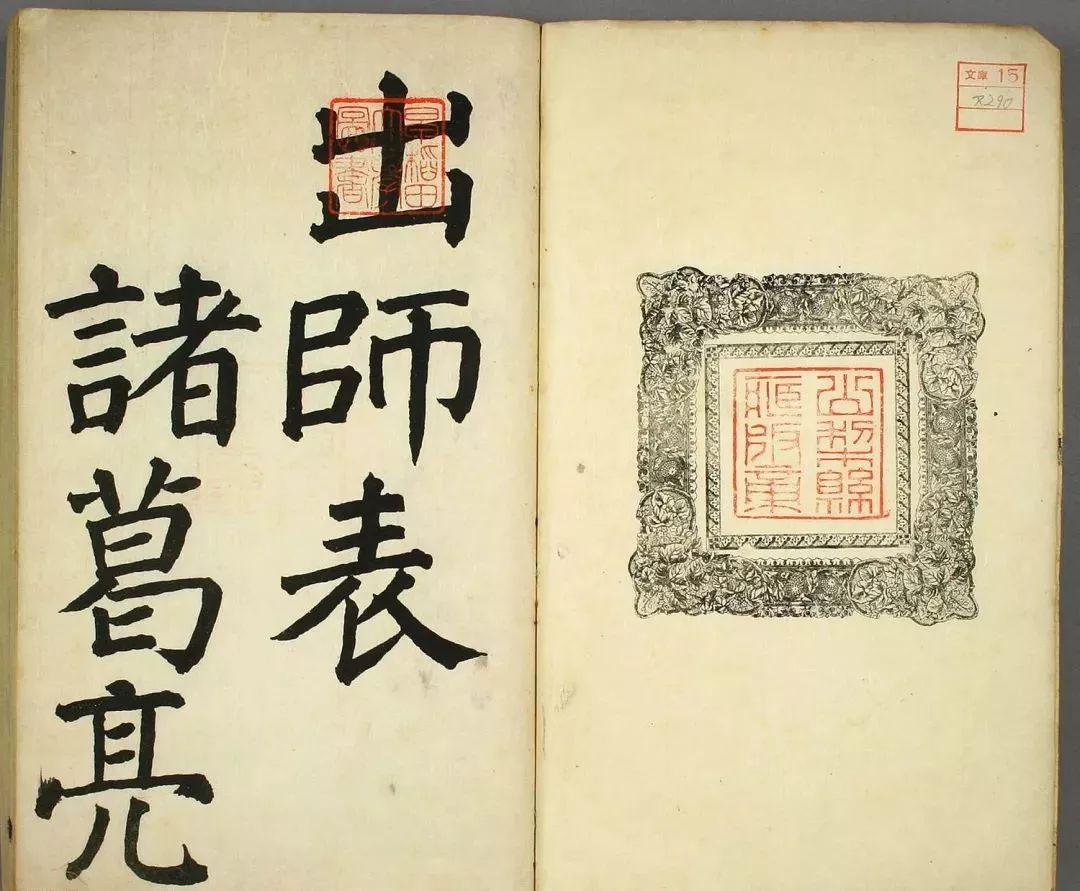 文庫 15
出師表
早稻田
大學
圖書
諸葛亮